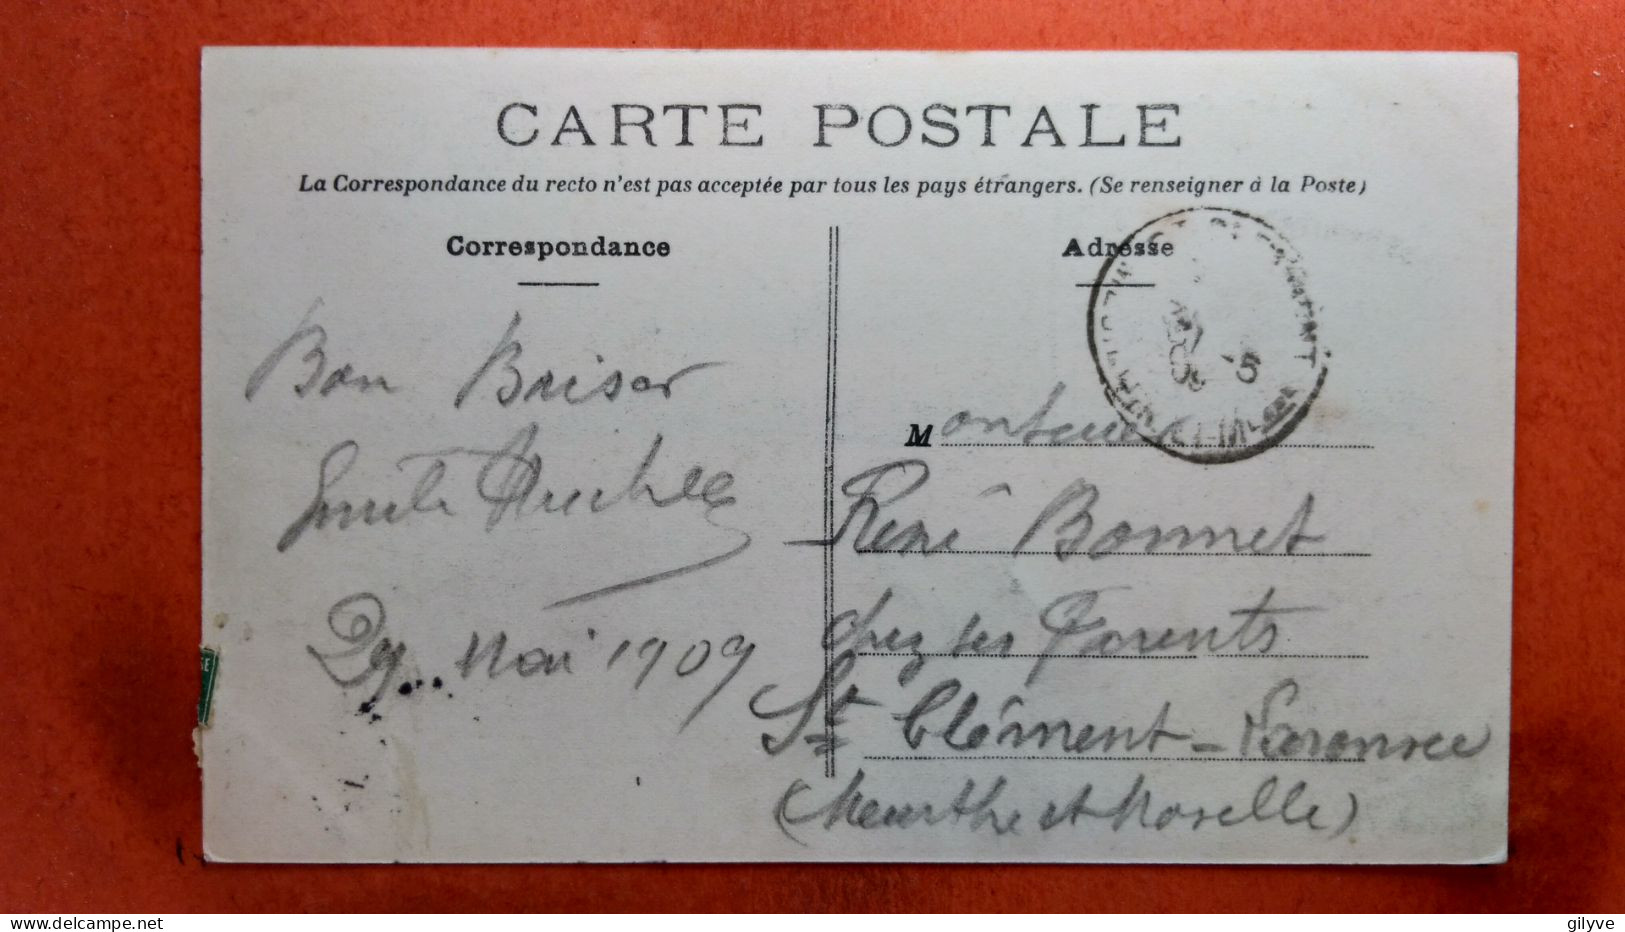 CARTE POSTALE
La Correspondance du recto n'est pas acceptée par tous les pays étrangers. (Se renseigner à la Poste)
Correspondance
Bon Baiser
29 Mai 1909
Adresse
ST CLEMENT
5
M
René Bonnet
chez ses Parents
St Clément
(Meurthe et Moselle)
gilyve